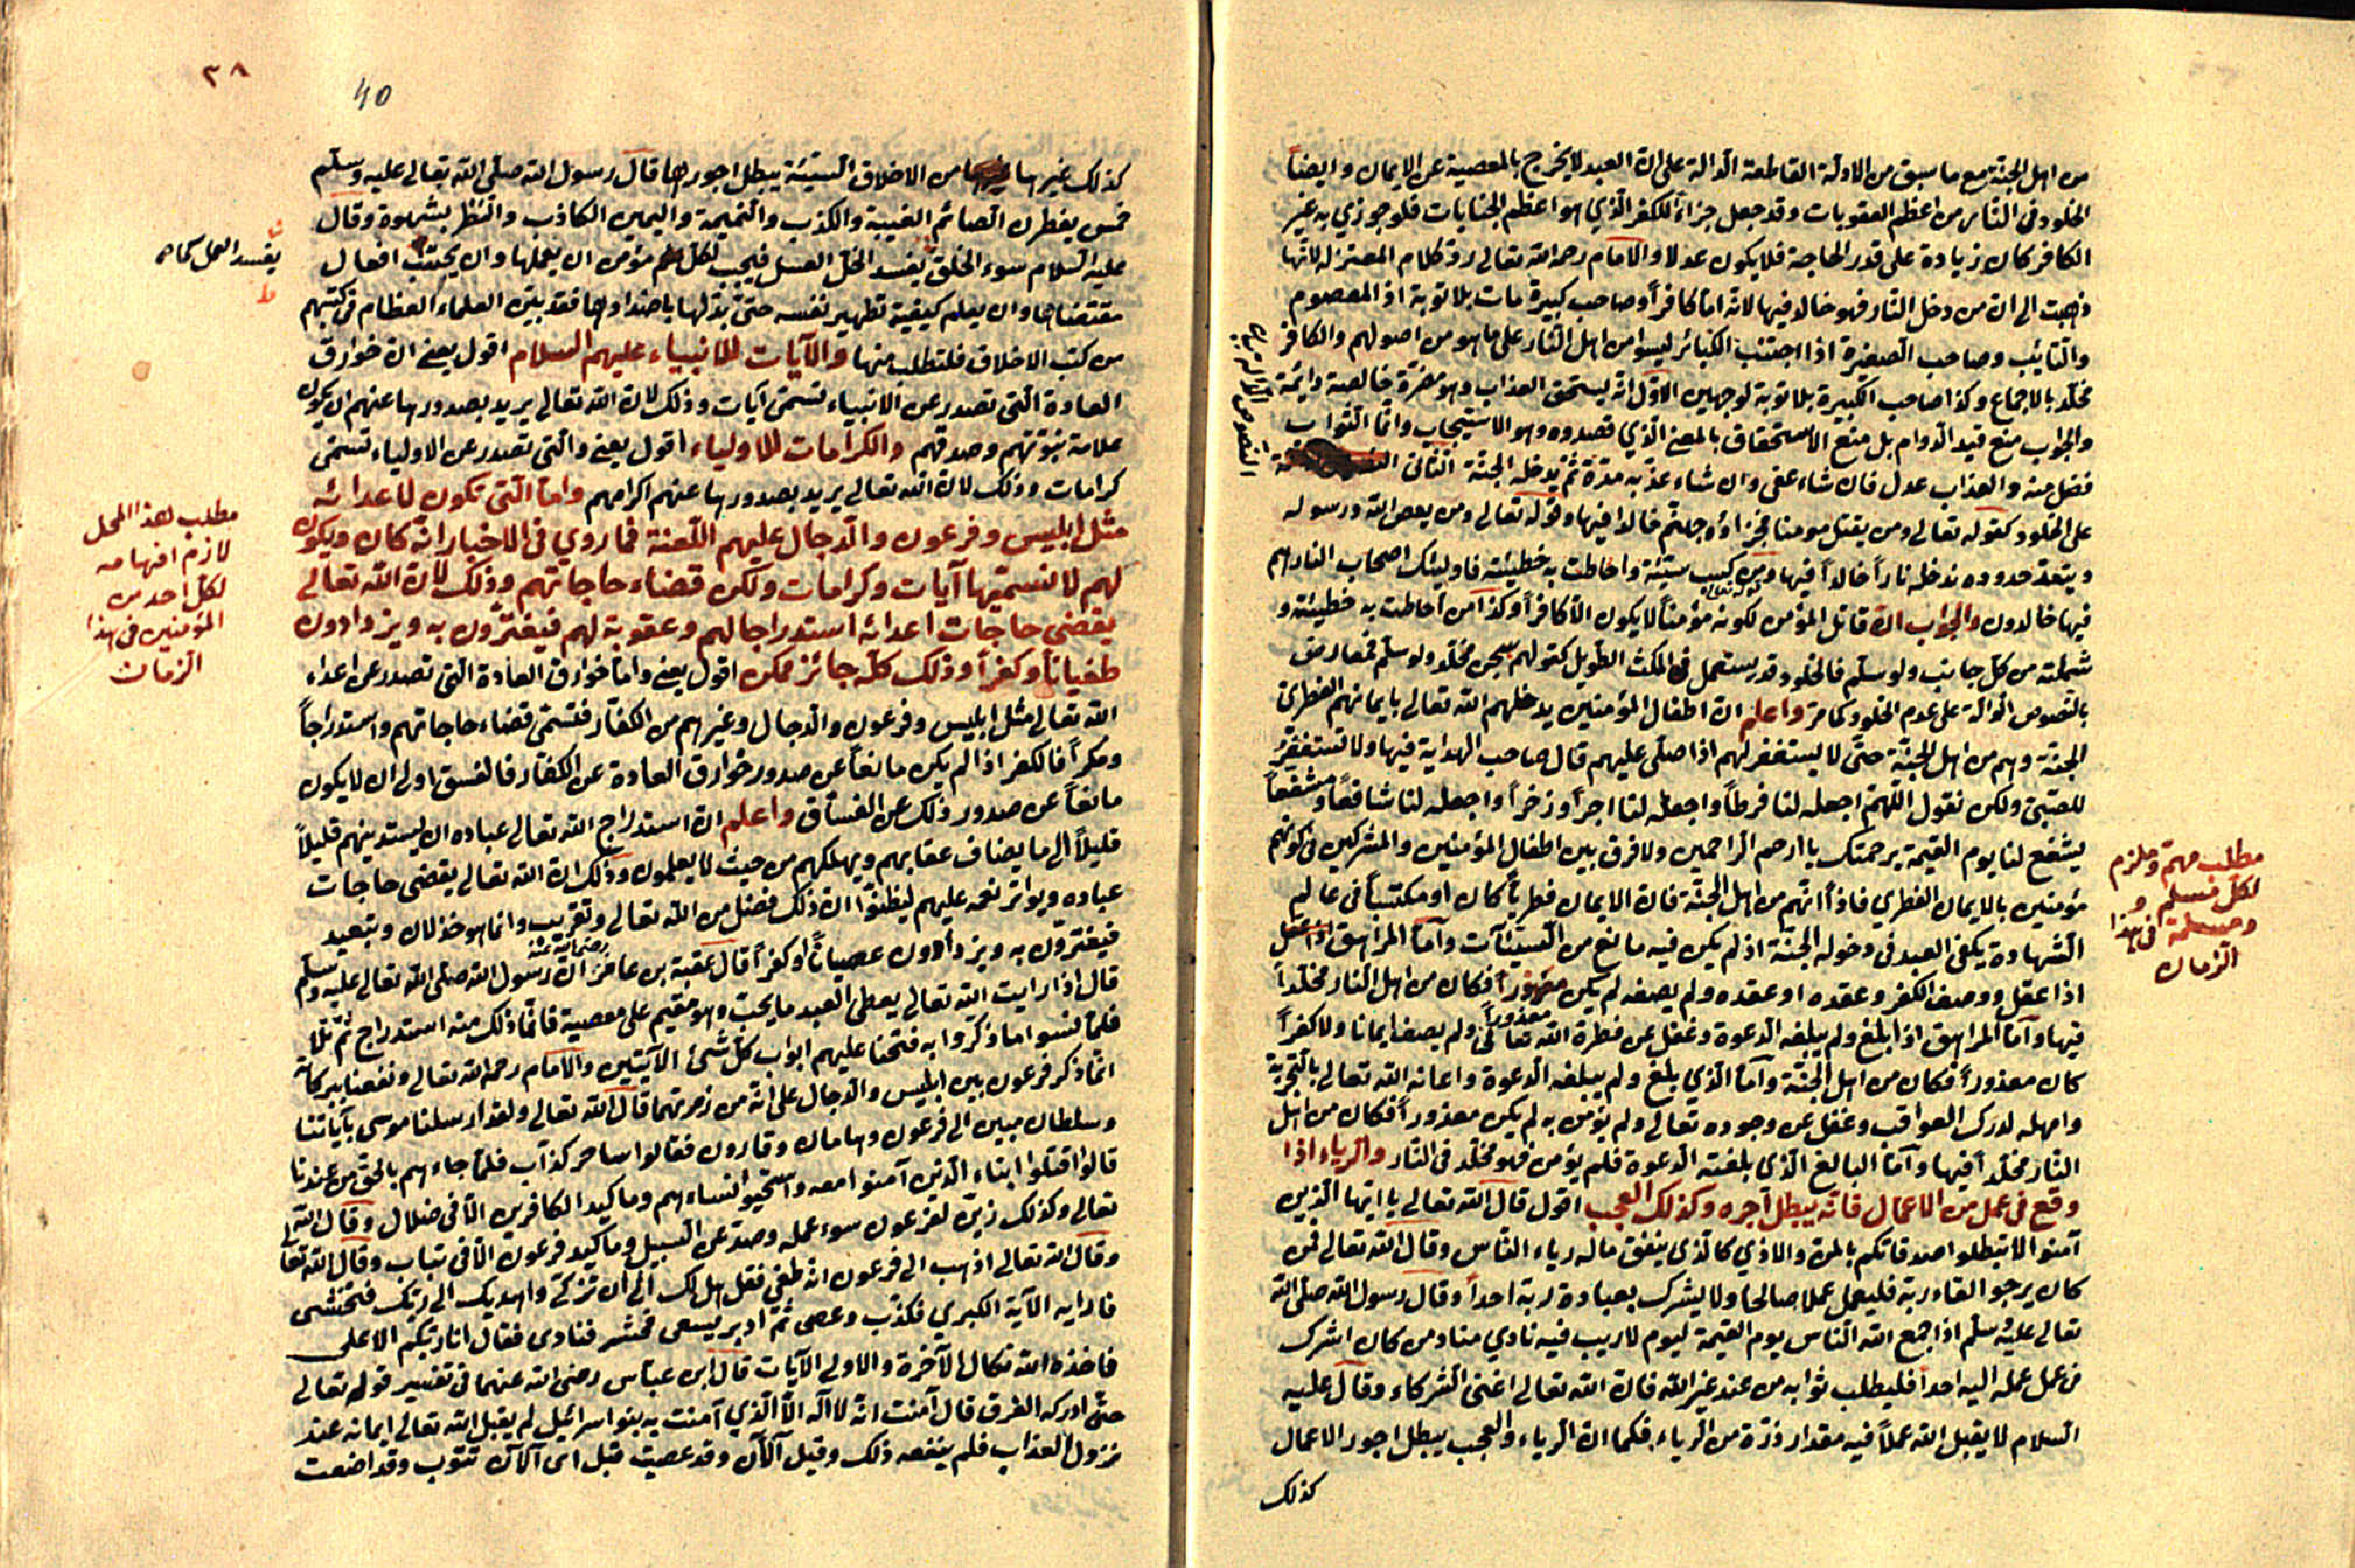 من اهل الجنة مع ما سبق من الادلة القاطعة الدالة على ان العبد لا يخرج بالمعصية عن الايمان وايضاً
الخلود فى النار من اعظم العقوبات وقد جعل جزاء للكفر الذي هو اعظم الجنايات فلو جوزي به غير
الكافر كان زيادة على قدر الحاجة فلا يكون عدلا والامام رحمه الله تعالى رد كلام المعتزله لانها
ذهبت الى ان من دخل النار فهو خالد فيها لانه اما كافراً وصاحب كبيرة مات بلا توبة اذ المعصوم
والتايب وصاحب الصغيرة اذا اجتنب الكبائر ليسوا من اهل النار على ما هو من اصولهم والكافر
مخلد بالاجماع وكذا صاحب الكبيرة بلا توبة لوجهين الاول انه يستحق العذاب وهو مضرة خالصة دائمة
والجواب منع قيد الدوام بل منع الاستحقاق بالمعنى الذي قصدوه وهو الاستيجاب وانما الثواب
فضل منه والعذاب عدل فان شاء عفى وان شاء عذبه مدة ثم يدخله الجنة الثانى
النصوص الدالة
على الخلود كقوله تعالى ومن يقتل مومنا فجزاؤه جهنم خالدا فيها وقوله تعالى ومن يعص الله ورسوله
ويتعد حدوده ندخله ناراً خالداً فيها ومن كسب سيئة واحاطت به خطيئته فاوليئك اصحاب النار هم
فيها خالدون والجواب ان قاتل المؤمن لكونه مؤمناً لا يكون الا كافراً وكذا من احاطت به خطيئته و
شملته من كل جانب ولو سلم فالخلود قد يستعمل فى المكث الطويل كقولهم سجن مخلد ولو سلم فمعارض
بالنصوص الدالة على عدم الخلود كما مر واعلم ان اطفال المؤمنين يدخلهم الله تعالى بايمانهم الفطرى
الجنة وهم من اهل الجنة حتى لا يستغفر لهم اذا صلى عليهم قال صاحب الهداية فيها ولا تستغفر
للصبى ولكن نقول اللهم اجعله لنا فرطاً واجعله لنا اجراً وزخراً واجعله لنا شافعاً ومشفعاً
يشفع لنا يوم القيمة برحمتك يا ارحم الراحمين ولا فرق بين اطفال المؤمنين والمشركين فى كونهم
مؤمنين بالايمان الفطري فاذا انهم من اهل الجنة فان الايمان فطرياً كان او مكتسباً فى عالم
الشهادة يكفى العبد فى دخوله الجنة اذ لم يكن فيه مانع من السيئآت وآما المراهق
اذا عقل ووصف الكفر وعقده او عقده ولم يصفه لم يكن معذوراً فكان من اهل النار مخلداً
فيها وآما المراهق اذا بلغ ولم يبلغه الدعوة وغفل عن فطرة الله تعالى ولم يصف ايمانا ولا كفراً
كان معذوراً فكان من اهل الجنة وآما الذي بلغ ولم يبلغه الدعوة واعانه الله تعالى بالتجربة
وامهله لدرك العواقب وغفل عن وجوده تعالى ولم يؤمن به لم يكن معذوراً فكان من اهل
النار مخلداً فيها وآما البالغ الذى بلغته الدعوة فلم يؤمن فهو مخلد فى النار والرياء اذا
وقع فى عمل من الاعمال فانه يبطل اجره وكذلك العجب اقول قال الله تعالى يا ايها الذين
آمنوا لا تبطلوا صدقاتكم بالمن والاذي كالذى ينفق ماله رياء الناس وقال الله تعالى فمن
كان يرجو القاء ربه فليعمل عملا صالحا ولا يشرك بعبادة ربه احداً وقال رسول الله صلى الله
تعالى عليه سلم اذا جمع الله الناس يوم القيمة ليوم لا ريب فيه نادي مناد من كان اشرك
فى عمل عمله اليه احداً فليطلب ثوابه من عند غير الله فان الله تعالى اغنى الشركاء وقال عليه
السلام لا يقبل الله عملاً فيه مقدار ذرة من الرياء فكما ان الرياء والعجب يبطل اجور الاعمال
كذلك
مطلب مهم وملزم
لكل مسلم و
ومسلمة فى هذا
الزمان
٣٨
40
كذلك غيرهما من الاخلاق السيئة يبطل اجورها قال رسول الله صلى الله تعالى عليه وسلم
خمس يفطرن الصائم الغيبة والكذب والنميمة واليمين الكاذب والنظر بشهوة وقال
عليه السلام سوء الخلق يفسد الخل العسل فيجب لكل مؤمن ان يعملها وان يجتنب افعال
مقتضاها وان يعلم كيفية تطهير نفسه حتى بدلها باضدادها فقد بين العلماء العظام فى كتبهم
من كتب الاخلاق فلتطلب منها والآيات للانبياء عليهم السلام اقول يعنى ان خوارق
العادة التى تصدر عن الانبياء تسمى آيات وذلك لان الله تعالى يريد بصدورها عنهم ان يكون
علامة نبوتهم وصدقهم والكرامات للاولياء اقول يعنى والتى تصدر عن الاولياء تسمى
كرامات وذلك لان الله تعالى يريد بصدورها عنهم اكرامهم واما التى تكون لاعدائه
مثل ابليس وفرعون والدجال عليهم اللعنة فما روي فى الاخبار انه كان ويكون
لهم لا نسميها آيات وكرامات ولكن قضاء حاجاتهم وذلك لان الله تعالى
يقضى حاجات اعدائه استدراجا لهم وعقوبة لهم فيغترون به ويزدادون
طغياناً وكفراً وذلك كله جائز ممكن اقول يعنى واما خوارق العادة التى تصدر عن اعداء
الله تعالى مثل ابليس وفرعون والدجال وغيرهم من الكفار فتسمى قضاء حاجاتهم واستدراجاً
ومكراً فالكفر اذا لم يكن مانعاً عن صدور خوارق العادة عن الكفار فالفسق اولى ان لا يكون
مانعاً عن صدور ذلك عن الفساق واعلم ان استدراج الله تعالى عباده ان يستدينهم قليلاً
قليلاً الى ما يضاف عقابهم ويهلكهم من حيث لا يعلمون وذلك ان الله تعالى يقضى حاجات
عباده ويواتر نعمه عليهم ليظنوا ان ذلك فضل من الله تعالى وتقريب وانما هو خذلان وتبعيد
فيغترون به ويزدادون عصياناً وكفراً قال عقبة بن عامر رضى الله عنه ان رسول الله صلى الله تعالى عليه وسلم
قال اذا رايت الله تعالى يعطى العبد ما يحب وهو مقيم على معصية فانما ذلك منه استدراج ثم تلا
فلما نسوا ما ذكروا به فتحنا عليهم ابواب كل شئ الآيتين والامام رحمه الله تعالى ونفعنا ببركاته
انما ذكر فرعون بين ابليس والدجال على انه من زمرتهما قال الله تعالى ولقد ارسلنا موسى بآياتنا
وسلطان مبين الى فرعون وهامان وقارون فقالوا ساحر كذاب فلما جاءهم بالحق من عندنا
قالوا اقتلوا ابناء الذين آمنوا معه واستحيوا نساءهم وما كيد الكافرين الا فى ضلال وقال الله
تعالى وكذلك زين لفرعون سوء عمله وصد عن السبيل وما كيد فرعون الا فى تباب وقال الله تعا
وقال الله تعالى اذهب الى فرعون انه طغى فقل هل لك الى ان تزكى واهديك الى ربك فتخشى
فارايه الآية الكبري فكذب وعصى ثم ادبر يسعى فحشر فنادى فقال انا ربكم الاعلى
فاخذه الله نكال الآخرة والاولى الآيات قال ابن عباس رضى الله عنهما فى تفسير قوله تعالى
حتى ادركه الغرق قال آمنت انه لا اله الا الذي آمنت به بنوا سرائيل لم يقبل الله تعالى ايمانه عند
نزول العذاب فلم ينفعه ذلك وقيل آلآن وقد عصيت قبل اى آلآن تتوب وقد اضعت
يفسد العمل كما
مطلب هذا المحل
لازم افهامه
لكل احد من
المؤمنين فى هذا
الزمان